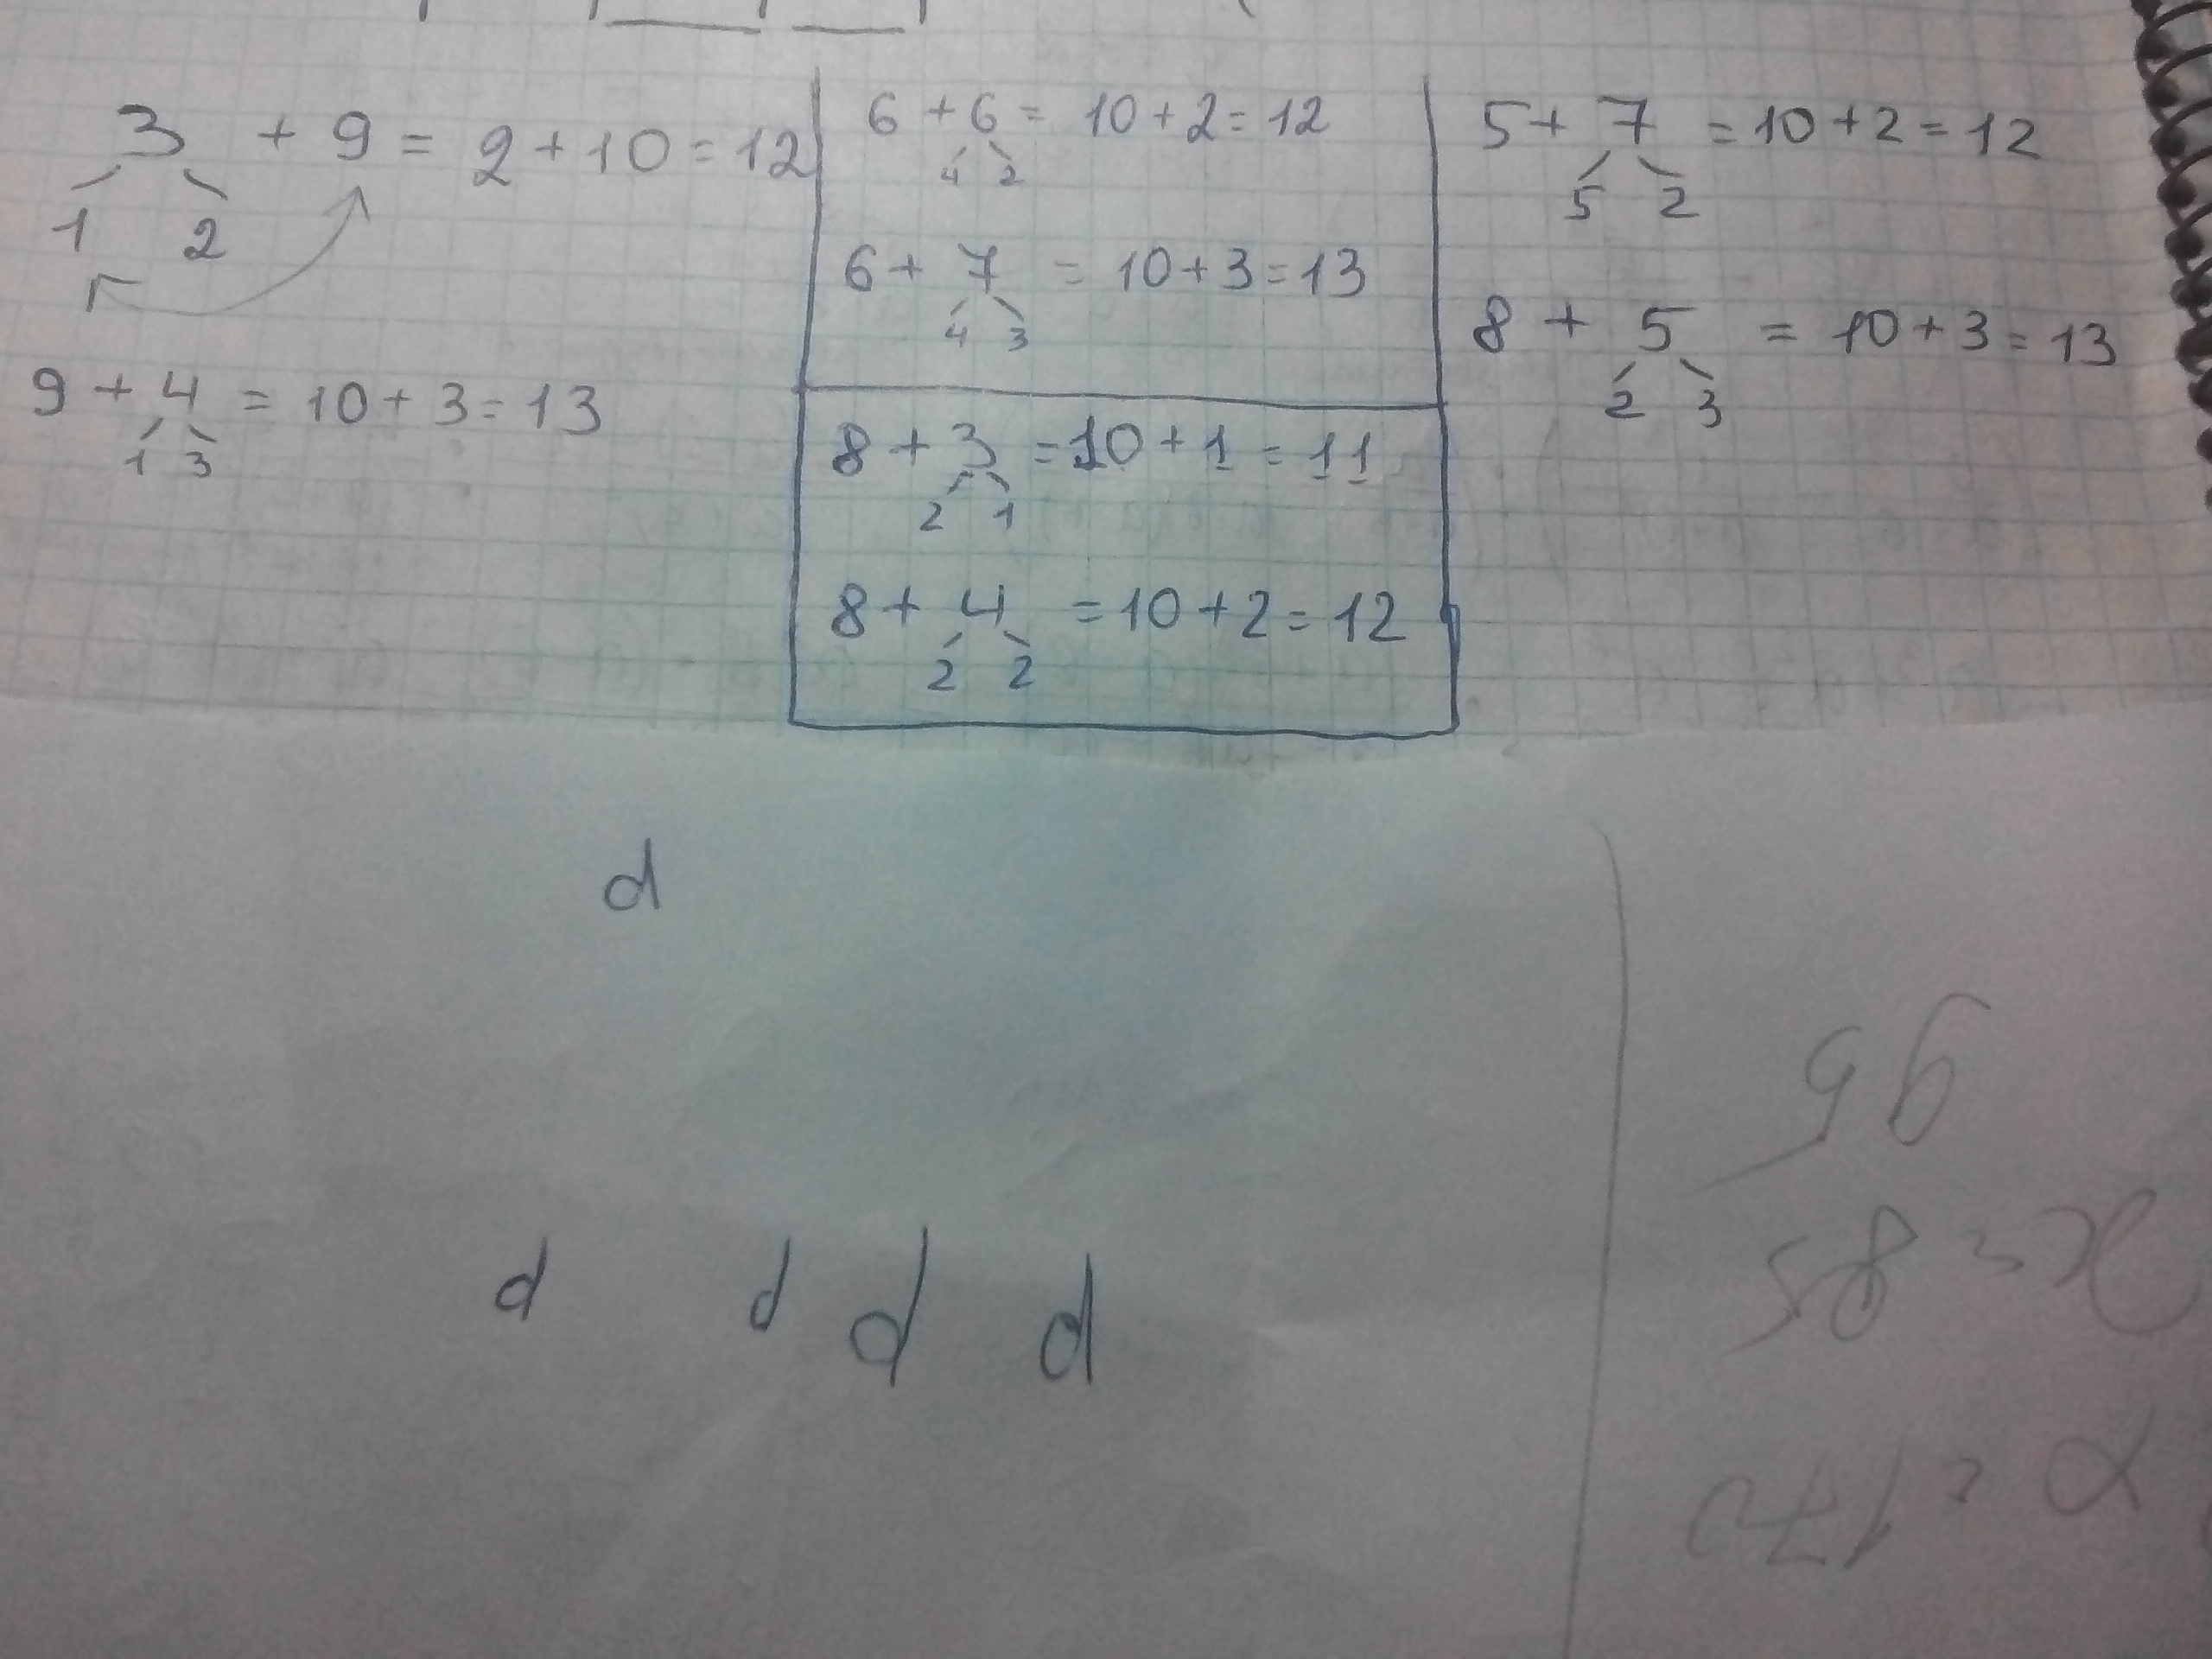 3 + 9 = 2 + 10 = 12
1 2
9 + 4 = 10 + 3 = 13
1 3
6 + 6 = 10 + 2 = 12
4 2
6 + 7 = 10 + 3 = 13
4 3
8 + 3 = 10 + 1 = 11
2 1
8 + 4 = 10 + 2 = 12
2 2
5 + 7 = 10 + 2 = 12
5 2
8 + 5 = 10 + 3 = 13
2 3
d
d d d d